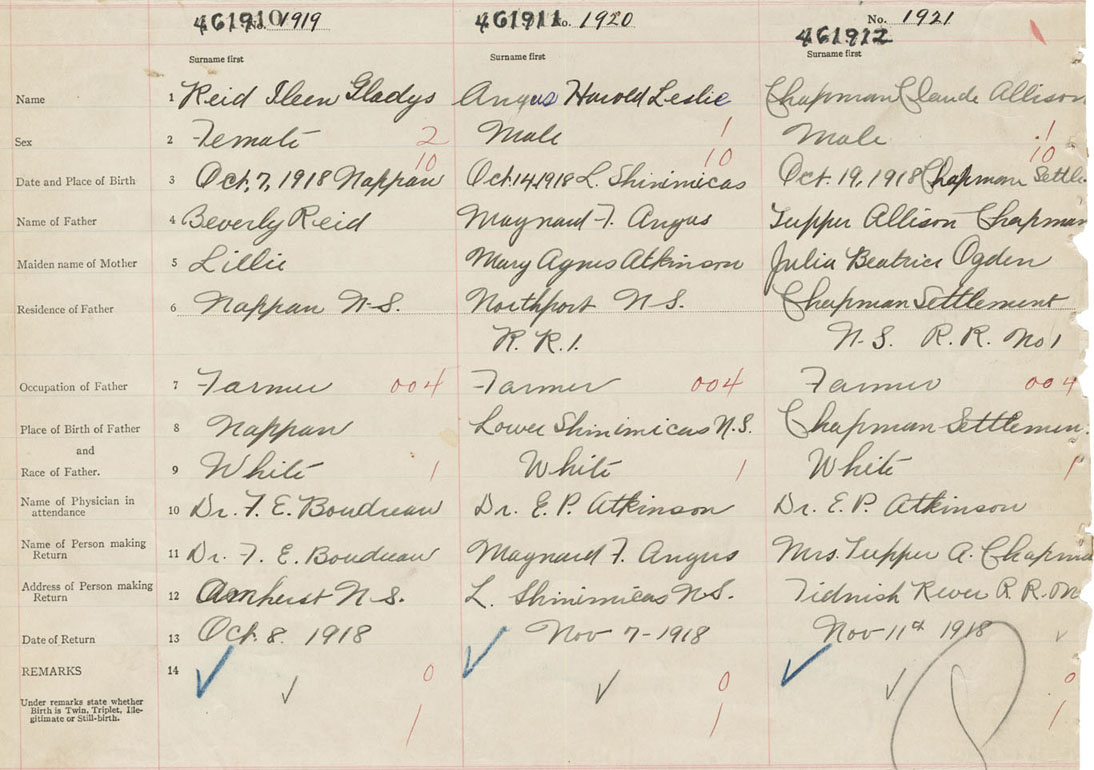 461910 No. 1919 461911 No. 1920 No. 1921
461912
Surname first Surname first Surname first
Name 1 Reid Ileen Gladys Angus Harold Leslie Chapman Claude Allison
Sex 2 Female 2 Male 1 Male 1
10 10 10
Date and Place of Birth 3 Oct. 7, 1918 Nappan Oct. 14, 1918 L. Shinimicas Oct. 19, 1918 Chapman Settle
Name of Father 4 Beverly Reid Maynard F. Angus Tupper Allison Chapman
Maiden name of Mother 5 Lillie Mary Agnes Atkinson Julia Beatrice Ogden
Residence of Father 6 Nappan N.S. Northport N.S. Chapman Settlement
R. R. 1. N.S. R.R. No 1
Occupation of Father 7 Farmer 004 Farmer 004 Farmer 004
Place of Birth of Father 8 Nappan Lower Shinimicas N.S. Chapman Settlemen
and
Race of Father. 9 White 1 White 1 White 1
Name of Physician in
attendance 10 Dr. F. E. Boudreau Dr. E. P. Atkinson Dr. E. P. Atkinson
Name of Person making
Return 11 Dr. F. E. Boudreau Maynard F. Angus Mrs. Tupper A. Chapma
Address of Person making
Return 12 Amherst N.S. L. Shinimicas N.S. Tidnish River R.R.
Date of Return 13 Oct. 8. 1918 Nov 7-1918 Nov 11th 1918
REMARKS 14 0 0 0
Under remarks state whether
Birth is Twin, Triplet, Ille-
gitimate or Still-birth. 1 1 1